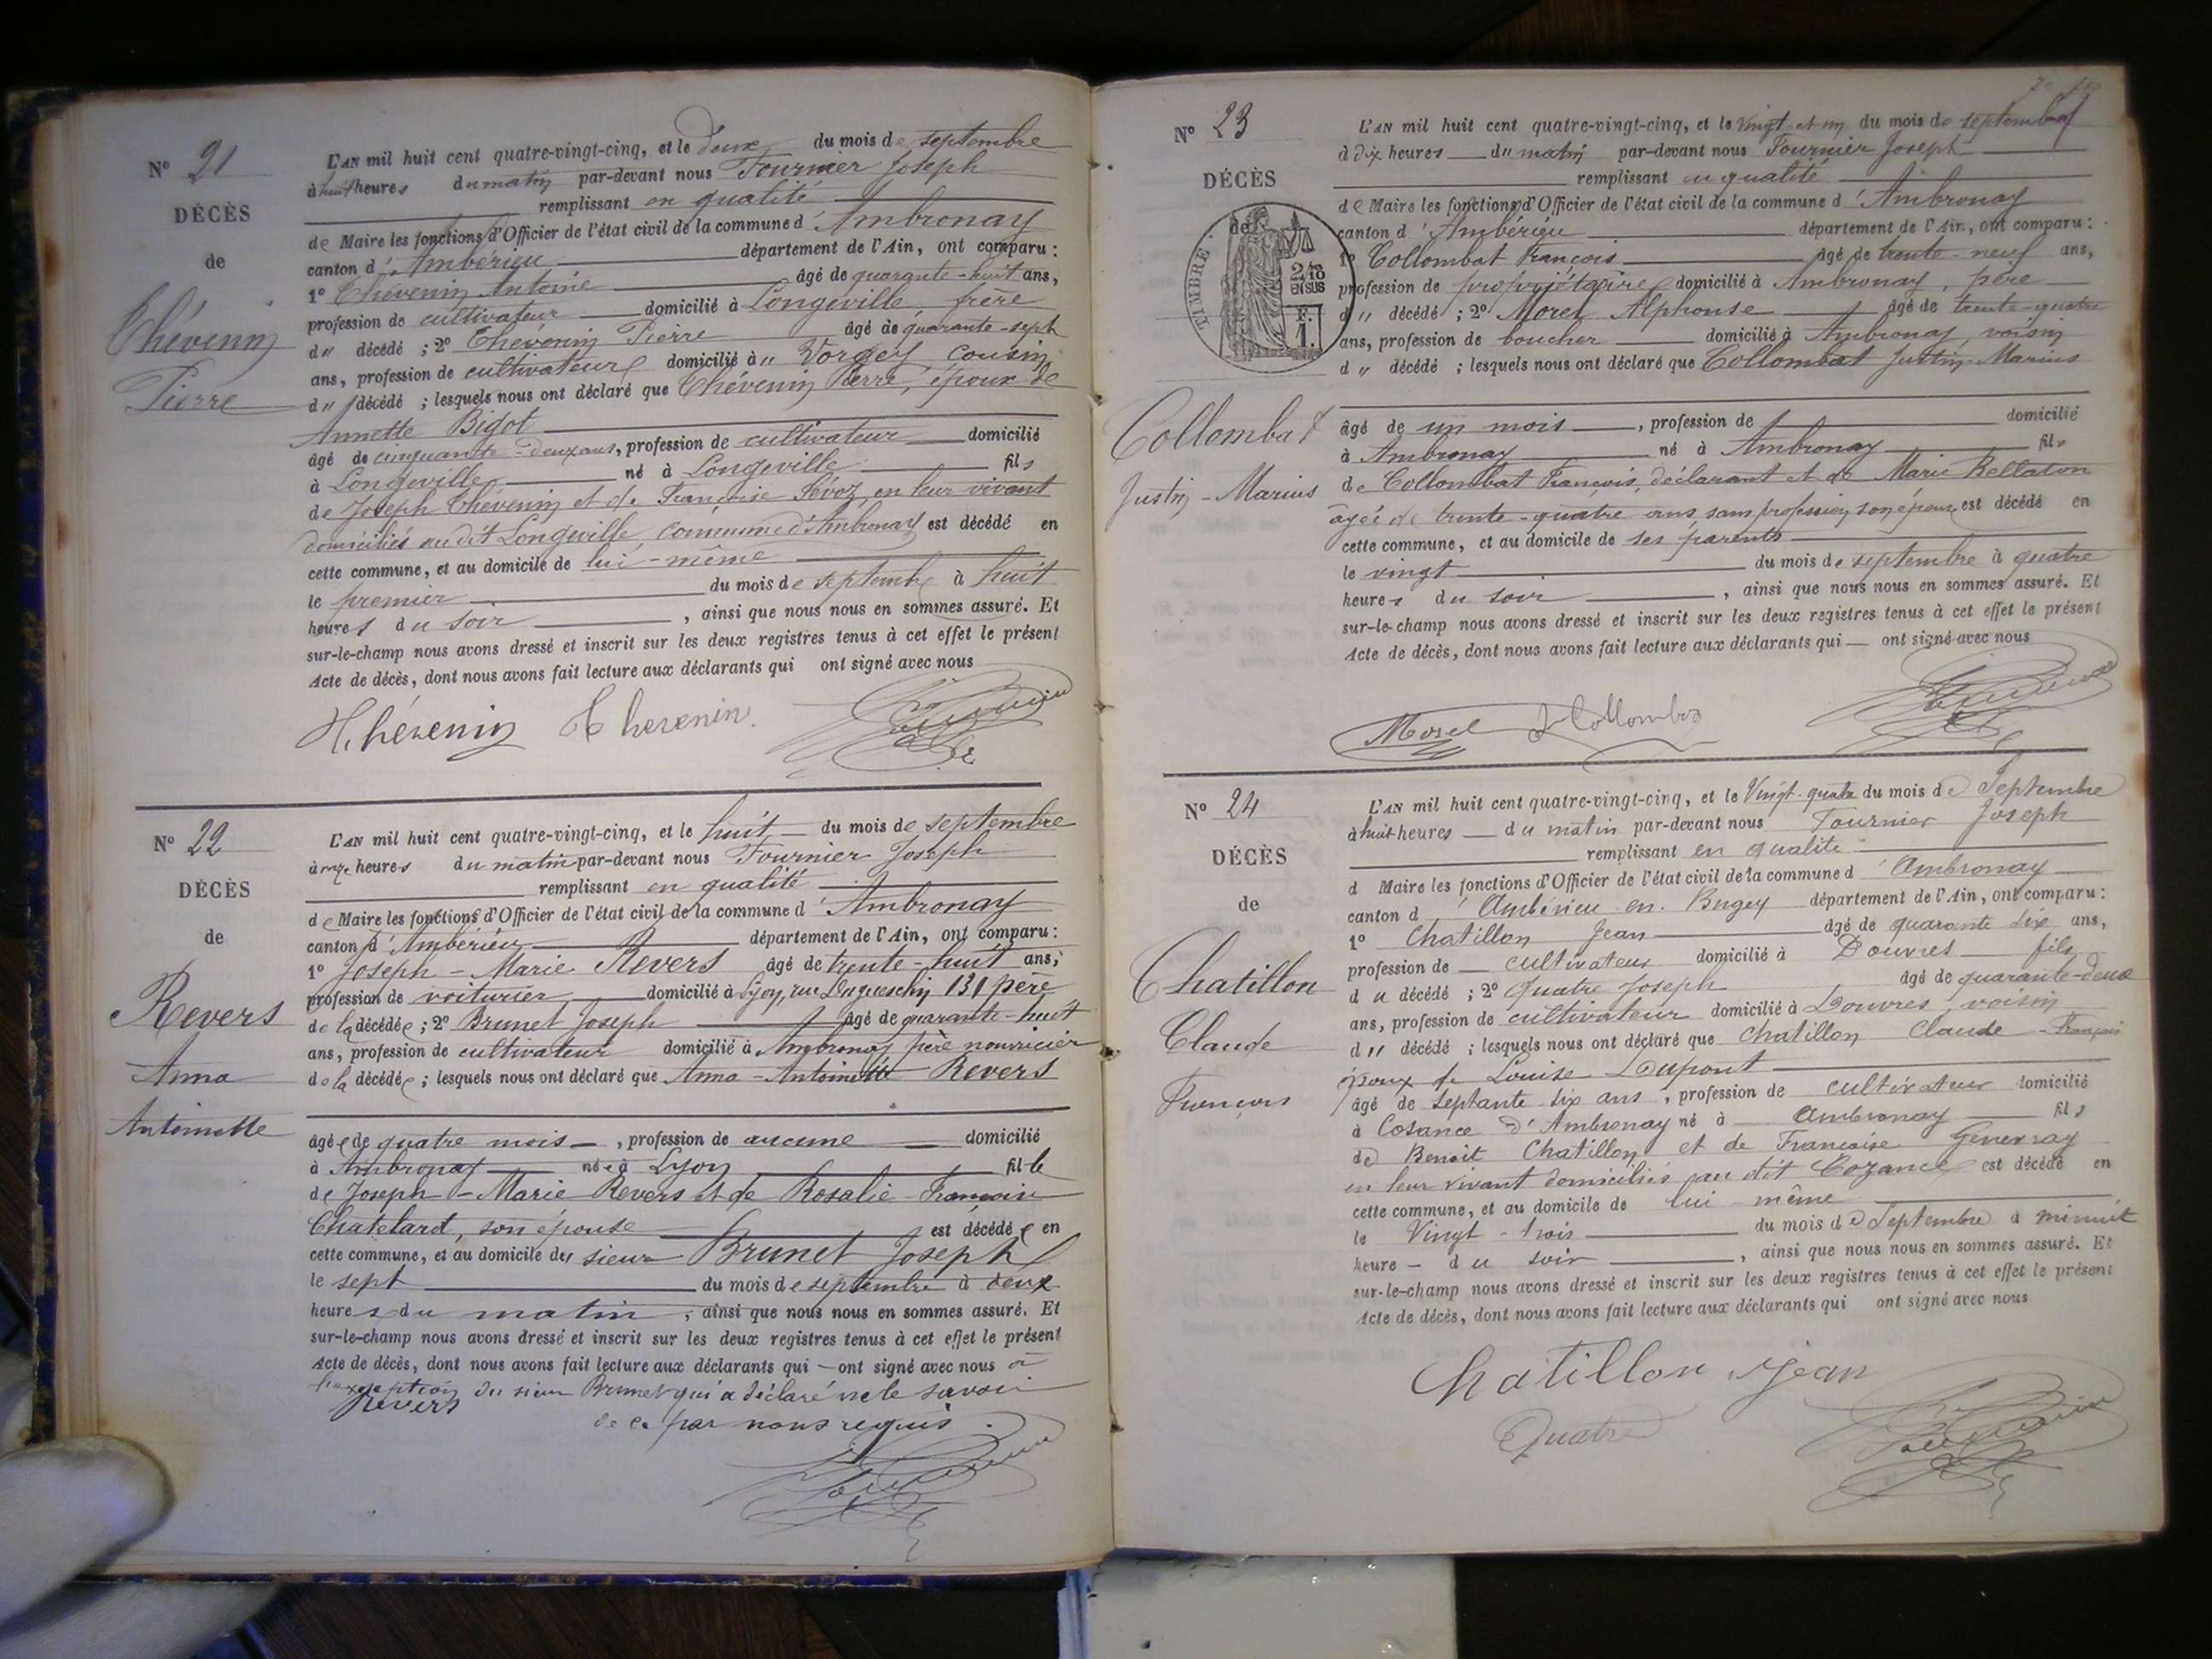 N° 21
DÉCÈS
de
Thévenin
Pierre
L'AN mil huit cent quatre-vingt-cinq, et le deux du mois de septembre
à huit heures du matin par-devant nous Fournier Joseph
remplissant en qualité
de Maire les fonctions d'Officier de l'état civil de la commune d'Ambronay
canton d'Ambérieu département de l'Ain, ont comparu :
1° Thévenin Antoine âgé de quarante-huit ans,
profession de cultivateur domicilié à Longeville, frère
du décédé ; 2° Thévenin Pierre âgé de quarante-sept
ans, profession de cultivateur domicilié à " Vorgey cousin
du décédé ; lesquels nous ont déclaré que Thévenin Pierre, époux de
Annette Bidot
âgé de cinquante-deux ans, profession de cultivateur domicilié
à Longeville né à Longeville fils
de Joseph Thévenin et de Françoise en leur vivant
domiciliés au dit Longeville, commune d'Ambronay est décédé en
cette commune, et au domicile de lui-même
le premier du mois de septembre à huit
heures du soir, ainsi que nous nous en sommes assuré. Et
sur-le-champ nous avons dressé et inscrit sur les deux registres tenus à cet effet le présent
Acte de décès, dont nous avons fait lecture aux déclarants qui ont signé avec nous
Thévenin Thevenin
N° 22
DÉCÈS
de
Revers
Anna
Antoinette
L'AN mil huit cent quatre-vingt-cinq, et le huit du mois de septembre
à onze heures du matin par-devant nous Fournier Joseph
remplissant en qualité
de Maire les fonctions d'Officier de l'état civil de la commune d'Ambronay
canton d'Ambérieu département de l'Ain, ont comparu :
1° Joseph-Marie Revers âgé de trente-huit ans,
profession de voiturier domicilié à Lyon, rue Duguesclin 131 père
de la décédée ; 2° Brunet Joseph âgé de quarante-huit
ans, profession de cultivateur domicilié à Ambronay père nourricier
de la décédée ; lesquels nous ont déclaré que Anna-Antoinette Revers
âgée de quatre mois, profession de aucune domicilié
à Ambronay née à Lyon fille
de Joseph-Marie Revers et de Rosalie-Françoise
Chatelard, son épouse est décédée en
cette commune, et au domicile du sieur Brunet Joseph
le sept du mois de septembre à deux
heures du matin, ainsi que nous nous en sommes assuré. Et
sur-le-champ nous avons dressé et inscrit sur les deux registres tenus à cet effet le présent
Acte de décès, dont nous avons fait lecture aux déclarants qui — ont signé avec nous à
l'exception du sieur Brunet qui a déclaré ne le savoir
Revers de ce par nous requis.
N° 23
DÉCÈS
de
TIMBRE.
2/10
EN SUS
F.
1.
Collombat
Justin-Marius
L'AN mil huit cent quatre-vingt-cinq, et le vingt et un du mois de septembre
à dix heures du matin par-devant nous Fournier Joseph
remplissant en qualité
de Maire les fonctions d'Officier de l'état civil de la commune d'Ambronay
canton d'Ambérieu département de l'Ain, ont comparu :
1° Collombat François âgé de trente-neuf ans,
profession de propriétaire domicilié à Ambronay, père
d " décédé ; 2° Morel Alphonse âgé de trente-quatre
ans, profession de boucher domicilié à Ambronay, voisin
d " décédé ; lesquels nous ont déclaré que Collombat Justin-Marius
âgé de un mois, profession de domicilié
à Ambronay né à Ambronay fils
de Collombat François, déclarant et de Marie Bellaton
âgée de trente-quatre ans, sans profession, son épouse est décédé en
cette commune, et au domicile de ses parents
le vingt du mois de septembre à quatre
heures du soir, ainsi que nous nous en sommes assuré. Et
sur-le-champ nous avons dressé et inscrit sur les deux registres tenus à cet effet le présent
Acte de décès, dont nous avons fait lecture aux déclarants qui — ont signé avec nous
Morel Collombat
N° 24
DÉCÈS
de
Chatillon
Claude
François
L'AN mil huit cent quatre-vingt-cinq, et le Vingt-quatre du mois de Septembre
à huit heures du matin par-devant nous Fournier Joseph
remplissant en qualité
d Maire les fonctions d'Officier de l'état civil de la commune d'Ambronay
canton d'Ambérieu en Bugey département de l'Ain, ont comparu :
1° Chatillon Jean âgé de quarante six ans,
profession de cultivateur domicilié à Douvres fils
du décédé ; 2° Quatre Joseph âgé de quarante-deux
ans, profession de cultivateur domicilié à Douvres, voisin
d " décédé ; lesquels nous ont déclaré que Chatillon Claude-François
époux de Louise Dupont
âgé de septante-six ans, profession de cultivateur domicilié
à Cosance d'Ambronay né à Ambronay fils
de Benoit Chatillon et de Françoise Genevray
en leur vivant domiciliés au dit Cozance est décédé en
cette commune, et au domicile de lui-même
le Vingt-trois du mois de Septembre à minuit
heure — du soir, ainsi que nous nous en sommes assuré. Et
sur-le-champ nous avons dressé et inscrit sur les deux registres tenus à cet effet le présent
Acte de décès, dont nous avons fait lecture aux déclarants qui ont signé avec nous
Chatillon Jean
Quatre